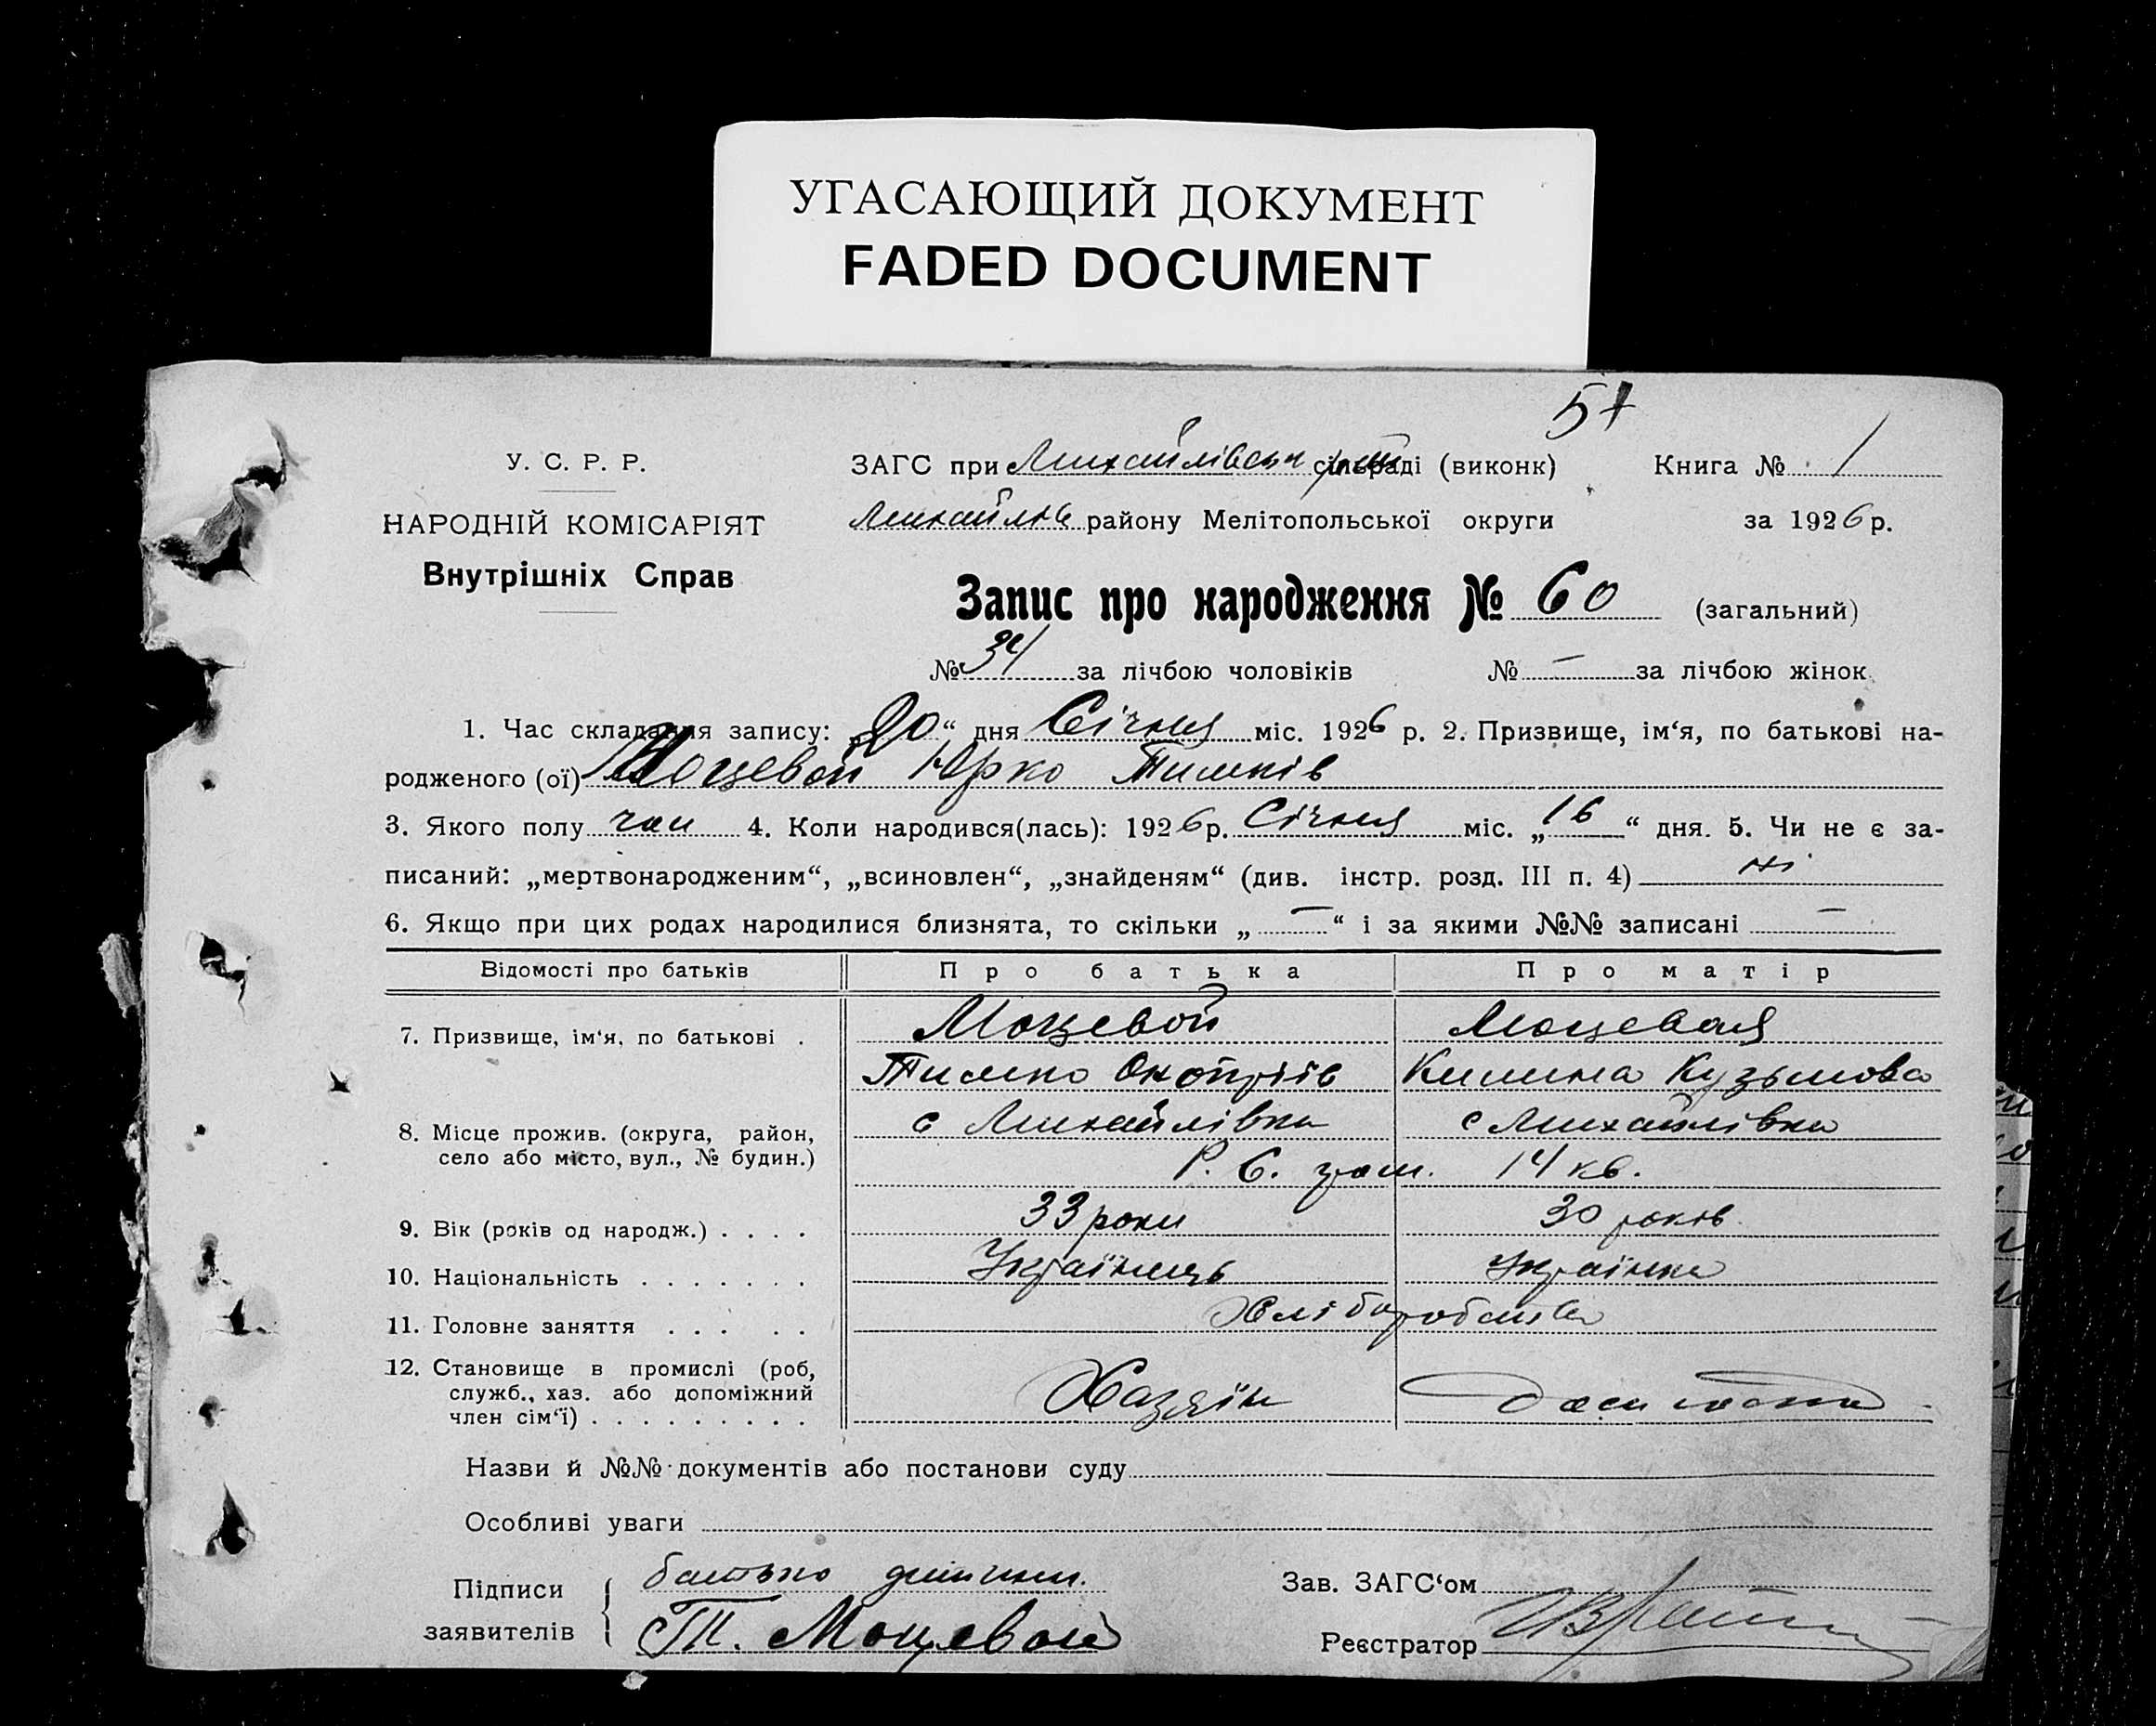 УГАСАЮЩИЙ ДОКУМЕНТ
FADED DOCUMENT
У. С. Р. Р.
НАРОДНІЙ КОМІСАРІЯТ
Внутрішніх Справ
57
ЗАГС при Михайлівськ сільраді (виконк) Книга № 1
Михайлів району Мелітопольської округи за 1926 р.
Запис про народження № 60 (загальний)
№ 34 за лічбою чоловіків № — за лічбою жінок
1. Час складання запису: „20“ дня Січня міс. 1926 р. 2. Призвище, ім‘я, по батькові на-
родженого (ої) Моцевой Юрко Тимків
3. Якого полу чол 4. Коли народився(лась): 1926 р. Січня міс. „16“ дня. 5. Чи не є за-
писаний: „мертвонародженим“, „всиновлен“, „знайденям“ (див. інстр. розд. III п. 4) ні
6. Якщо при цих родах народилися близнята, то скільки „—“ і за якими №№ записані —
Відомості про батьків Про батька Про матір
7. Призвище, ім‘я, по батькові . Моцевой Моцевая
Тимко Онопріїв Килина Кузьмова
8. Місце прожив. (округа, район, с Михайлівка с Михайлівка
село або місто, вул., № будин.) Р. С. гром. 14 кв.
9. Вік (років од народж.) . . . . 33 роки 30 років
10. Національність . . . . . . . Українець Українка
11. Головне заняття . . . . . Хліборобства
12. Становище в промислі (роб,
служб., хаз. або допоміжний Хазяїн
член сім‘ї) . . . . . . . . .
Назви й №№ документів або постанови суду
Особливі уваги
Підписи батько дитини.
заявителів Т. Моцевой
Зав. ЗАГС‘ом
Реєстратор